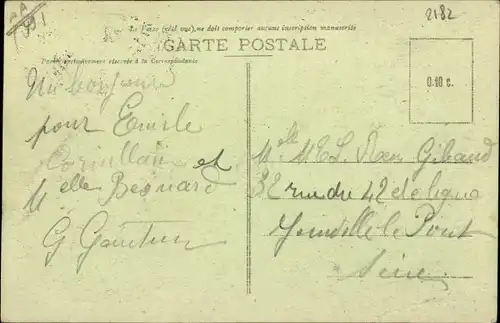 2182
Le Verso (côté vue), ne doit comporter aucune inscription manuscrite
CARTE POSTALE
Partie exclusivement réservée à la Correspondance
0.10 c.
Un bonjour
pour Emile
et
Melle Besnard
G. Gautier
32 rue du 42e de ligne
Joinville le Pont
Seine